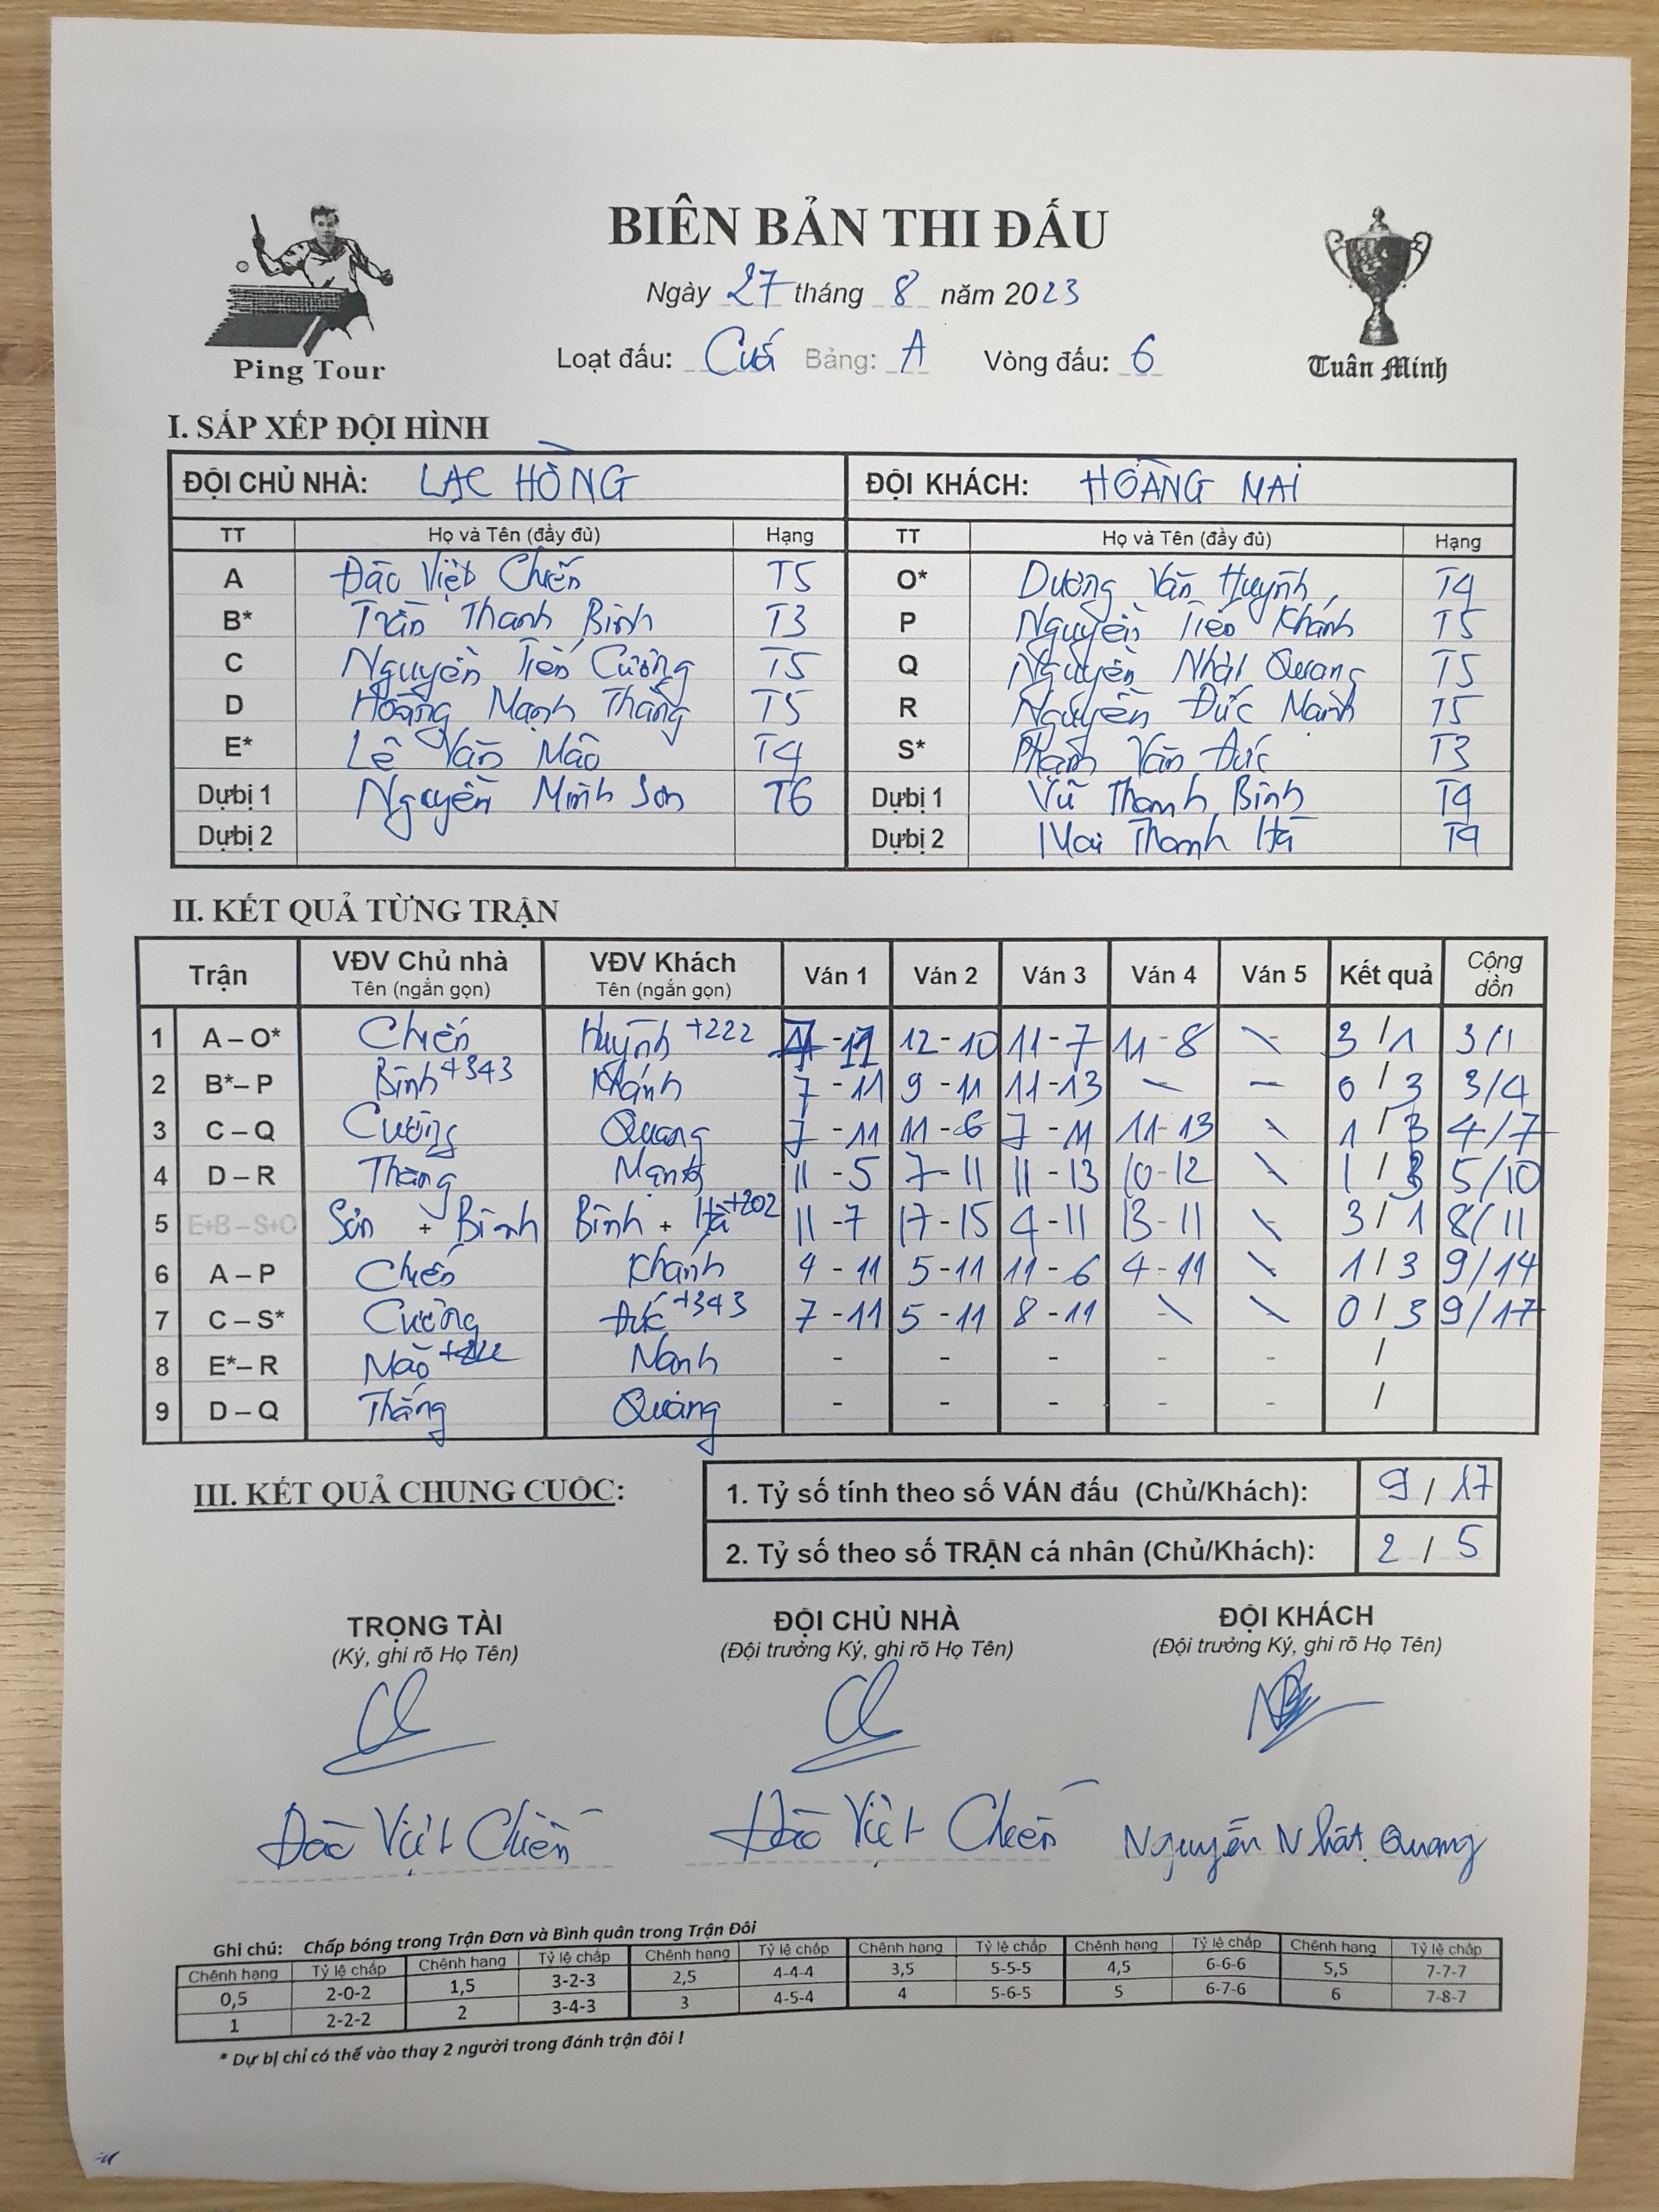 BIÊN BẢN THI ĐẤU
Ngày 27 tháng 8 năm 2023
Ping Tour
Loạt đấu: Cuối Bảng: A Vòng đấu: 6
Tuấn Minh
I. SẮP XẾP ĐỘI HÌNH
ĐỘI CHỦ NHÀ: LẠC HỒNG ĐỘI KHÁCH: HOÀNG MAI
TT Họ và Tên (đầy đủ) Hạng TT Họ và Tên (đầy đủ) Hạng
A Đào Việt Chiến T5 O* Dương Văn Huỳnh T4
B* Trần Thanh Bình T3 P Nguyễn Tiến Khánh T5
C Nguyễn Tiến Cường T5 Q Nguyễn Nhật Quang T5
D Hoàng Mạnh Thắng T5 R Nguyễn Đức Mạnh T5
E* Lê Văn Mão T4 S* Phạm Văn Đức T3
Dự bị 1 Nguyễn Minh Sơn T6 Dự bị 1 Vũ Thanh Bình T4
Dự bị 2 Dự bị 2 Mai Thanh Hà T4
II. KẾT QUẢ TỪNG TRẬN
Trận VĐV Chủ nhà VĐV Khách Ván 1 Ván 2 Ván 3 Ván 4 Ván 5 Kết quả Cộng dồn
Tên (ngắn gọn) Tên (ngắn gọn)
1 A – O* Chiến Huỳnh +222 - 11 12 - 10 11 - 7 11 - 8 \ 3 / 1 3/1
2 B* – P Bình +343 Khánh 7 - 11 9 - 11 11 - 13 - - 0 / 3 3/4
3 C – Q Cường Quang 7 - 11 11 - 6 7 - 11 11 - 13 \ 1 / 3 4/7
4 D – R Thắng Mạnh 11 - 5 7 - 11 11 - 13 10 - 12 \ 1 / 3 5/10
5 E+B – S+O Sơn + Bình Bình + Hà +202 11 - 7 17 - 15 4 - 11 13 - 11 \ 3 / 1 8/11
6 A – P Chiến Khánh 4 - 11 5 - 11 11 - 6 4 - 11 \ 1 / 3 9/14
7 C – S* Cường Đức +343 7 - 11 5 - 11 8 - 11 \ \ 0 / 3 9/17
8 E* – R Mão Mạnh - - - - - /
9 D – Q Thắng Quang - - - - - /
III. KẾT QUẢ CHUNG CUỘC:
1. Tỷ số tính theo số VÁN đấu (Chủ/Khách): 9 / 17
2. Tỷ số theo số TRẬN cá nhân (Chủ/Khách): 2 / 5
TRỌNG TÀI ĐỘI CHỦ NHÀ ĐỘI KHÁCH
(Ký, ghi rõ Họ Tên) (Đội trưởng Ký, ghi rõ Họ Tên) (Đội trưởng Ký, ghi rõ Họ Tên)
Đào Việt Chiến Đào Việt Chiến Nguyễn Nhật Quang
Ghi chú: Chấp bóng trong Trận Đơn và Bình quân trong Trận Đôi
Chênh hạng Tỷ lệ chấp Chênh hạng Tỷ lệ chấp Chênh hạng Tỷ lệ chấp Chênh hạng Tỷ lệ chấp Chênh hạng Tỷ lệ chấp Chênh hạng Tỷ lệ chấp
0,5 2-0-2 1,5 3-2-3 2,5 4-4-4 3,5 5-5-5 4,5 6-6-6 5,5 7-7-7
1 2-2-2 2 3-4-3 3 4-5-4 4 5-6-5 5 6-7-6 6 7-8-7
* Dự bị chỉ có thể vào thay 2 người trong đánh trận đôi !